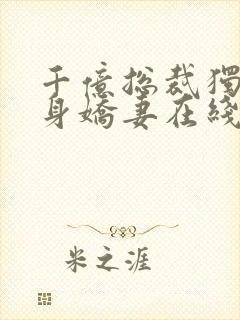 千億總裁獨
身嬌妻在綫
米之涯